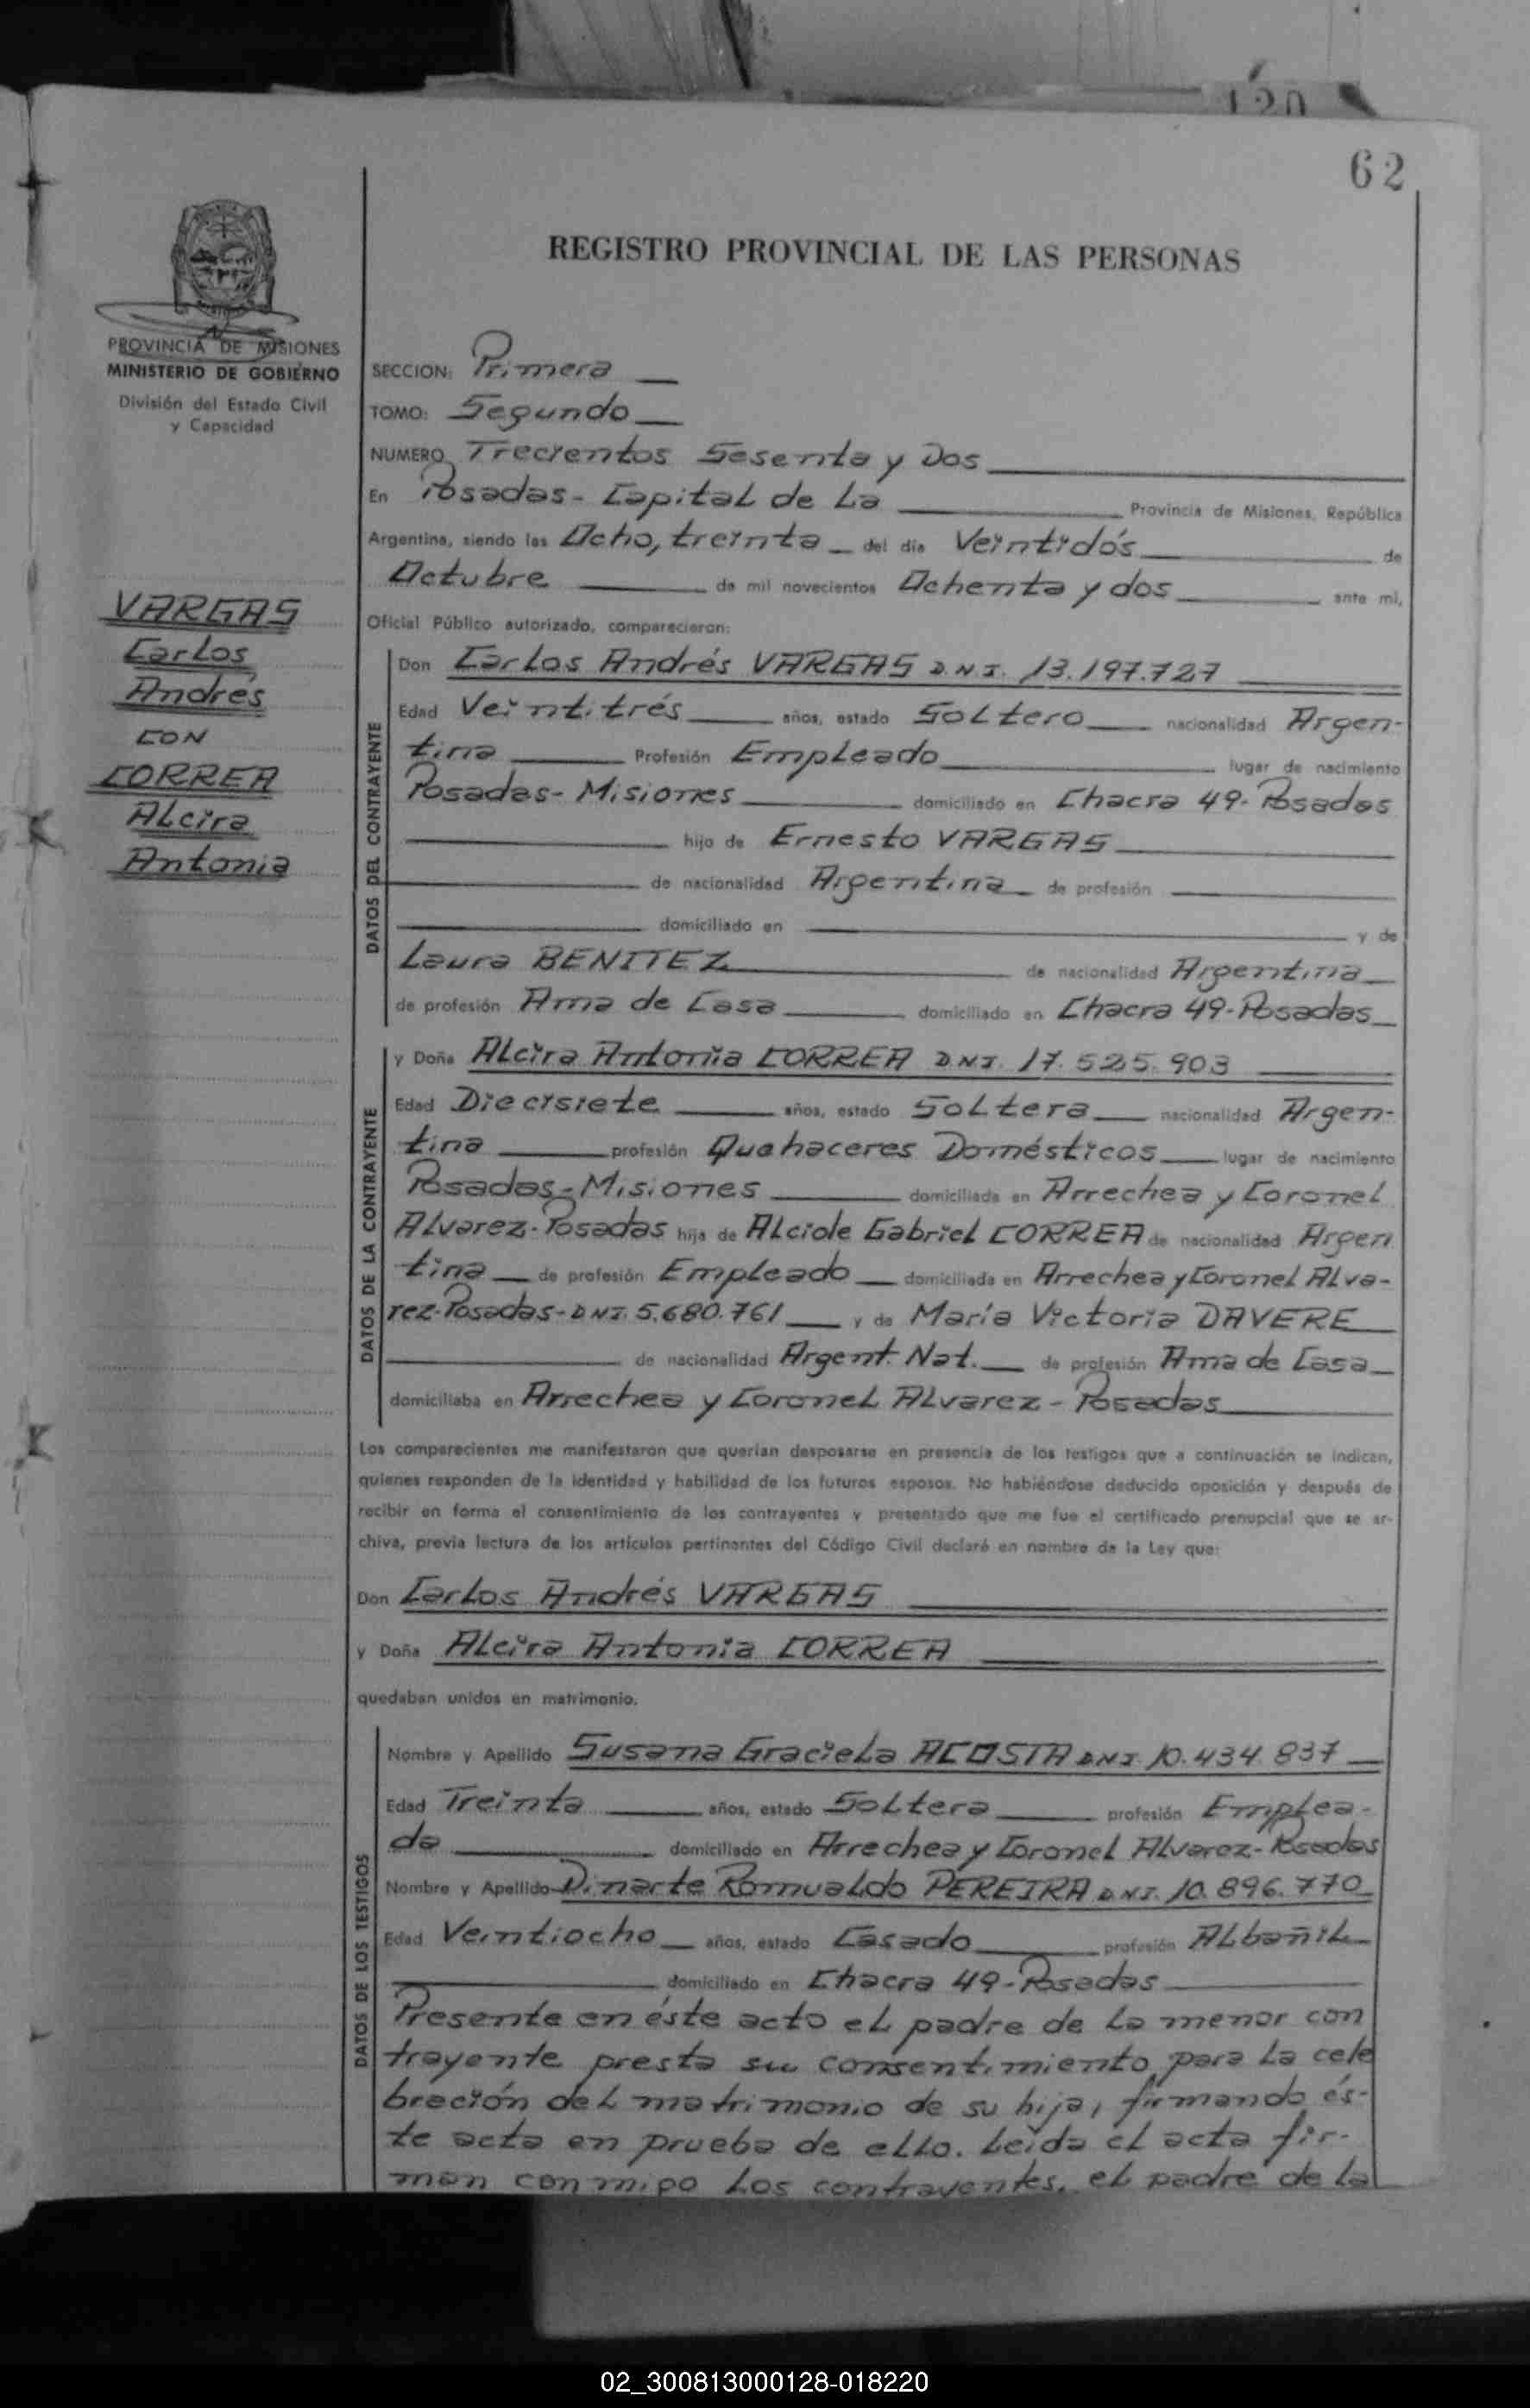 120
62
REGISTRO PROVINCIAL DE LAS PERSONAS
PROVINCIA DE MISIONES
MINISTERIO DE GOBIERNO
División del Estado Civil
y Capacidad
VARGAS
Carlos
Andrés
CON
CORREA
Alcira
Antonia
SECCION: Primera
TOMO: Segundo
NUMERO Trecientos Sesenta y Dos
En Posadas - Capital de La Provincia de Misiones, República
Argentina, siendo las Ocho, treinta del día Veintidós de
Octubre de mil novecientos Ochenta y dos ante mí,
Oficial Público autorizado, comparecieron:
DATOS DEL CONTRAYENTE
Don Carlos Andrés VARGAS D.N.I. 13.197.727
Edad Veintitrés años, estado Soltero nacionalidad Argen-
tina Profesión Empleado lugar de nacimiento
Posadas - Misiones domiciliado en Chacra 49 - Posadas
hijo de Ernesto VARGAS
de nacionalidad Argentina de profesión
domiciliado en y de
Laura BENITEZ de nacionalidad Argentina
de profesión Ama de Casa domiciliado en Chacra 49 - Posadas
DATOS DE LA CONTRAYENTE
y Doña Alcira Antonia CORREA D.N.I. 17.525.903
Edad Diecisiete años, estado Soltera nacionalidad Argen-
tina profesión Quehaceres Domésticos lugar de nacimiento
Posadas - Misiones domiciliada en Arrechea y Coronel
Alvarez - Posadas hija de Alciole Gabriel CORREA de nacionalidad Argen
tina de profesión Empleado domiciliada en Arrechea y Coronel Alva-
rez - Posadas - D.N.I. 5.680.761 y de María Victoria DAVERE
de nacionalidad Argent. Nat. de profesión Ama de Casa
domiciliaba en Arrechea y Coronel Alvarez - Posadas
Los comparecientes me manifestaron que querían desposarse en presencia de los testigos que a continuación se indican,
quienes responden de la identidad y habilidad de los futuros esposos. No habiéndose deducido oposición y después de
recibir en forma el consentimiento de los contrayentes y presentado que me fue el certificado prenupcial que se ar-
chiva, previa lectura de los artículos pertinentes del Código Civil declaré en nombre de la Ley que:
Don Carlos Andrés VARGAS
y Doña Alcira Antonia CORREA
quedaban unidos en matrimonio.
DATOS DE LOS TESTIGOS
Nombre y Apellido Susana Graciela ACOSTA D.N.I. 10.434.837
Edad Treinta años, estado Soltera profesión Emplea-
da domiciliado en Arrechea y Coronel Alvarez - Posadas
Nombre y Apellido Dinarte Romualdo PEREIRA D.N.I. 10.896.770
Edad Veintiocho años, estado Casado profesión Albañil
domiciliado en Chacra 49 - Posadas
Presente en éste acto el padre de la menor con
trayente presta su consentimiento para la cele
bración del matrimonio de su hija, firmando és-
te acta en prueba de ello. Leída el acta fir-
man conmigo los contrayentes, el padre de la
02_300813000128-018220